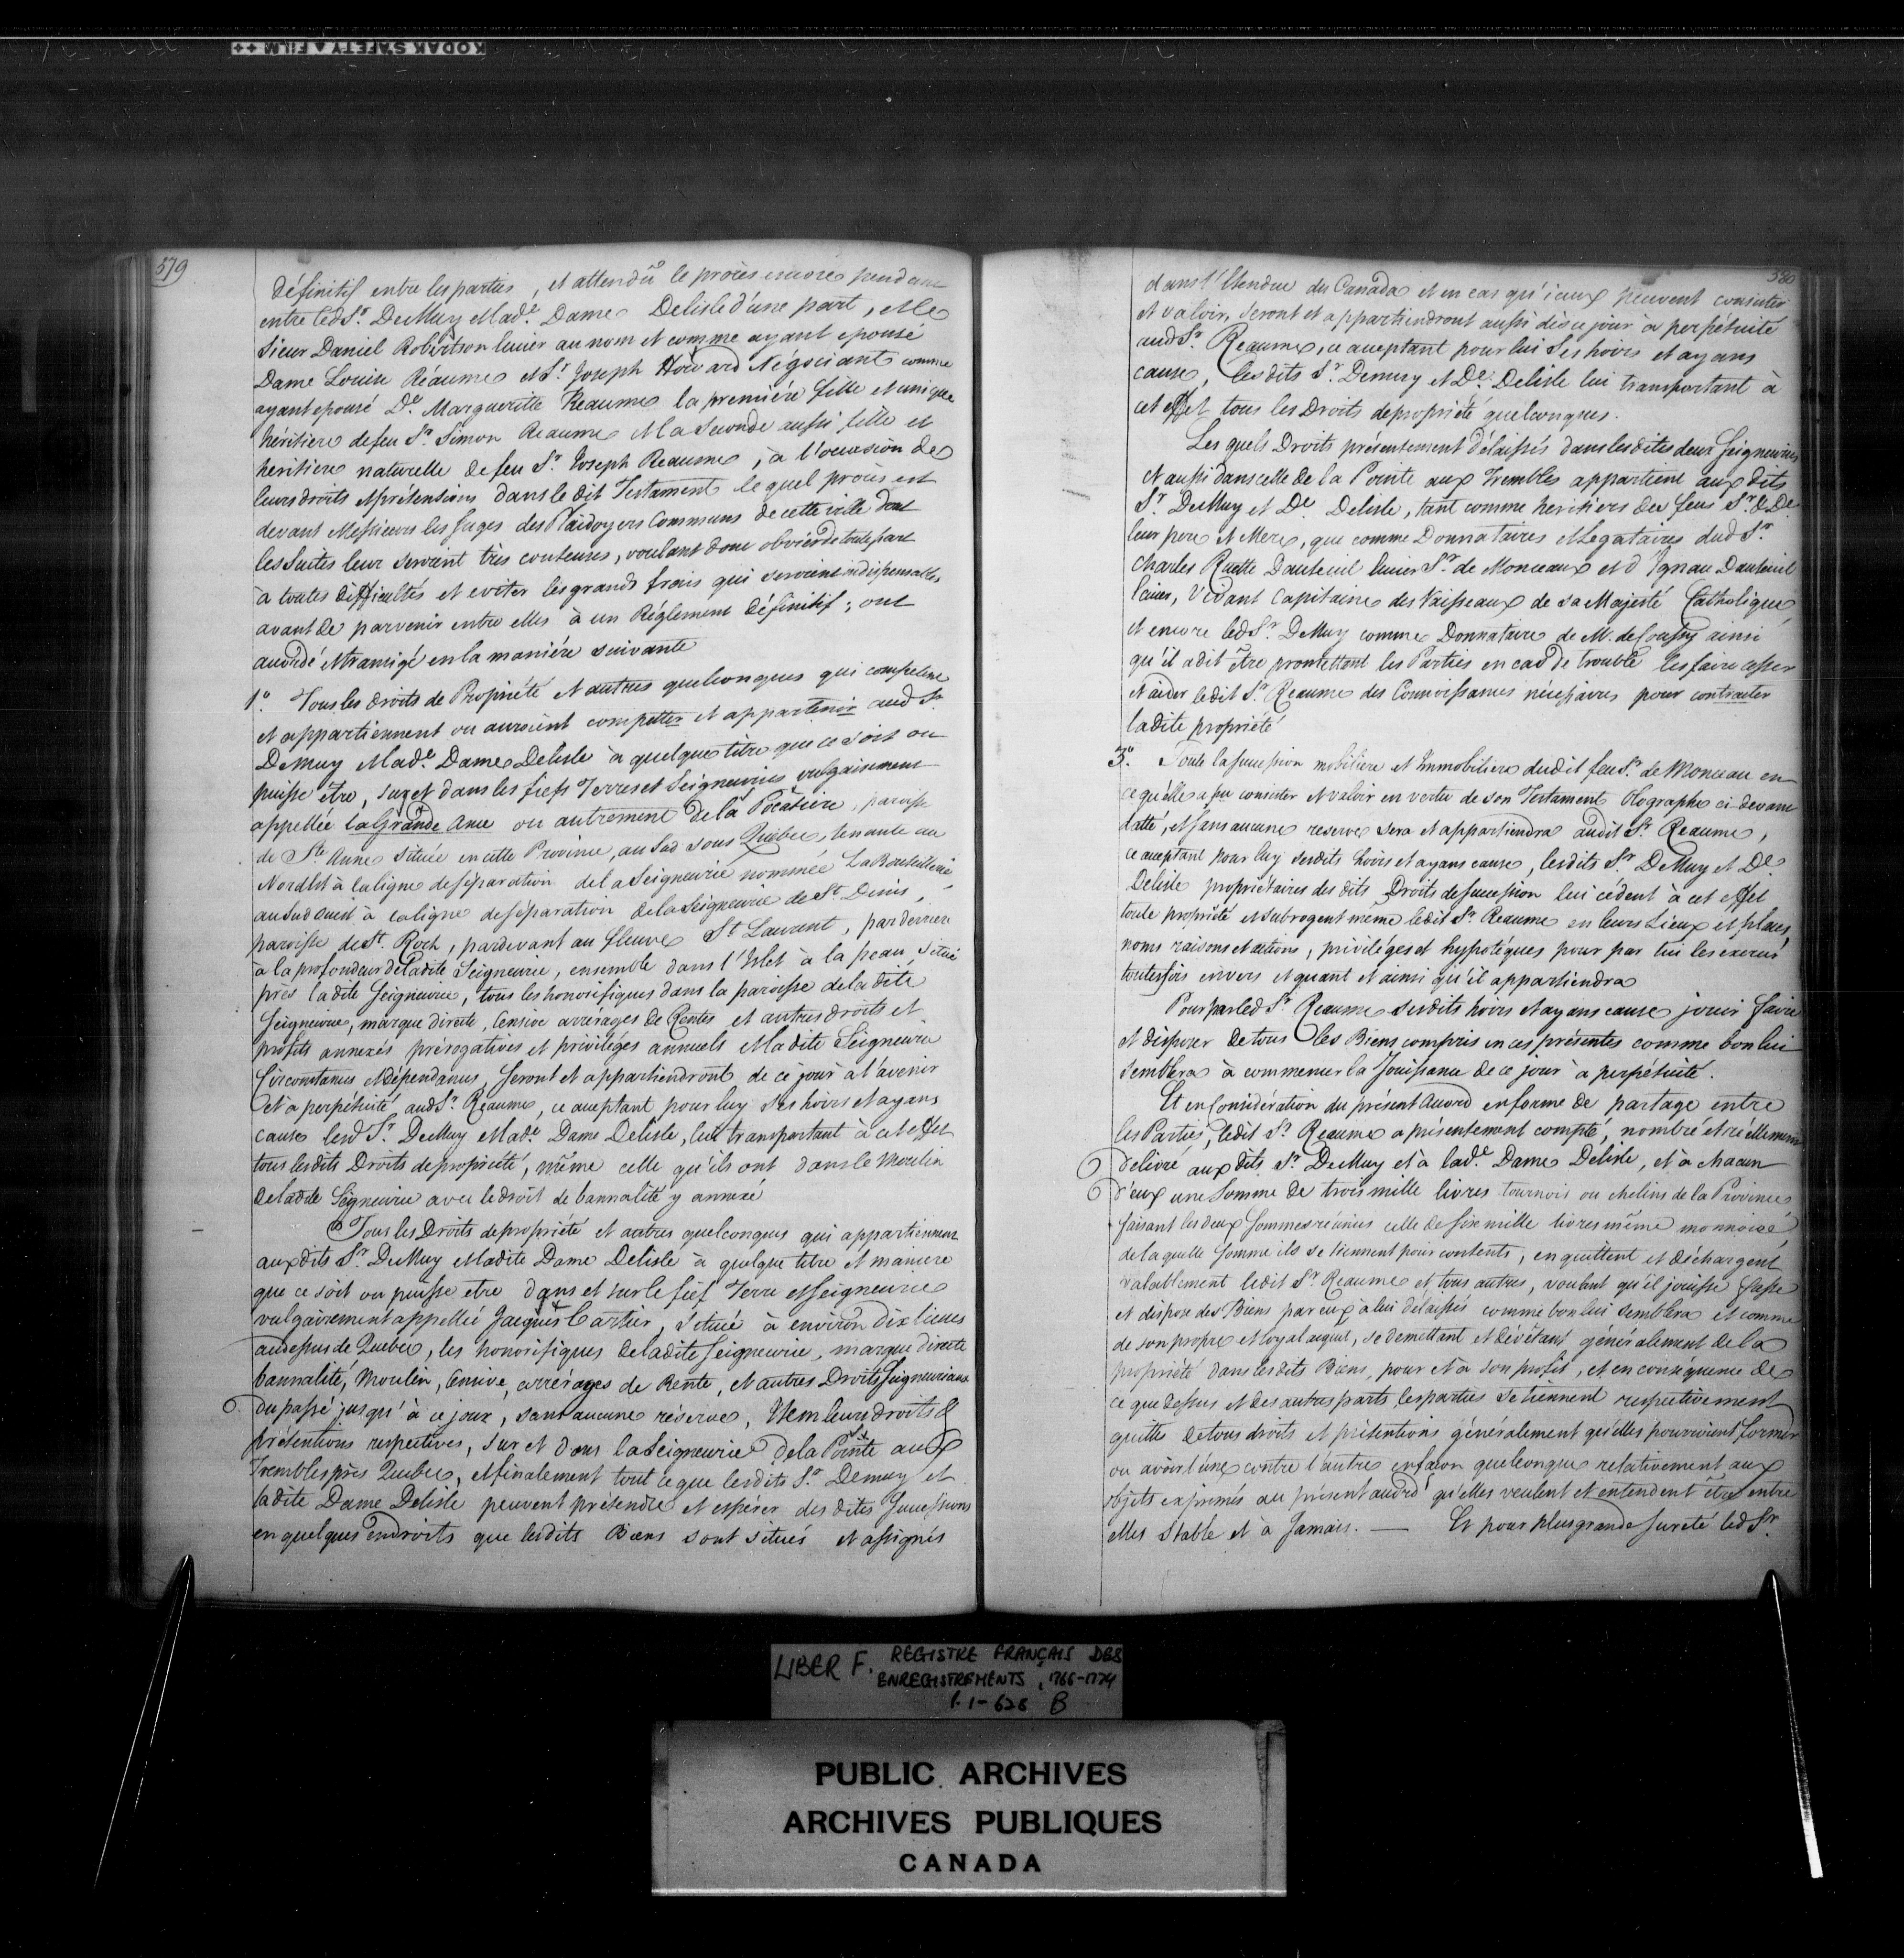 KODAK SAFETY FILM ++
579
définitif entre les parties, et attendû le procès encore pendant
entre led Sr. DeMuy et lade. Dame Delisle d'une part, et le
Sieur Daniel Robertson Ecuier au nom et comme ayant epousé
Dame Louise Réaume et Sr. Joseph Howard Négociant comme
ayant epousé De. Marguerite Reaume la première fille et unique
héritiere de feu Sr. Simon Reaume et la seconde aussi fille et
heritiere naturelle de feu Sr. Joseph Reaume, à l'occasion de
leurs droits et prétensions dans le dit Testament le quel procès est
devant Messieurs les Juges des Plaidoyers Communs de cette ville dont
les suites leur seroient très couteuses, voulant donc obvier de toute part
à toutes difficultés et eviter les grands frais qui seroient indispensables
avant de parvenir entre elles à un Réglement définitif; ont
accordé et transigé en la maniére suivante
1o. Tous les droits de Propriété et autres quelconques qui compettent
et appartiennent ou auroient competter et appartenir aud Sr.
Demuy et lade. Dame Delisle à quelque titre que ce soit ou
puisse être, sur et dans les fiefs Terres et Seigneuries vulgairement
appellée la Grande Ance ou autrement de la Pocatière, paroisse
de Ste. Anne située en cette Province, au Sud sous Quebec, tenante au
Nord Est à la ligne de séparation de la Seigneurie nommée La Bouteillerie,
au Sud ouest à la ligne de séparation de la Seigneurie de St. Denis,
paroisse de St. Roch, pardevant au fleuve St. Laurent, par derriere
à la profondeur de ladite Seigneurie, ensemble dans l'Islet à la peau, situé
près ladite Seigneurie, tous les honorifiques dans la paroisse de ladite
Seigneurie, marque directe, Censive arrérages de Rentes et autres droits et
profits annexés prérogatives et privilégés annuels et ladite Seigneurie
Circonstances et dépendances, seront et appartiendront de ce jour à l'avenir
et à perpétuité aud Sr. Réaume, ce acceptant pour luy ses hoirs et ayans
cause lesd Sr. DeMuy et lade. Dame Delisle, lui transportant à cet effet
tous lesdits Droits de propriété, même celle qu'ils ont dans le Moulin
de ladite Seigneurie avec le droit de bannalité y annexé
Tous les Droits de propriété et autres quelconques qui appartiennent
auxdits Sr. DeMuy et ladite Dame Delisle à quelque titre et maniere
que ce soit ou puisse etre dans et sur le fief Terre et Seigneurie
vulgairement appellée Jacques Cartier, située à environ dix lieues
audessus de Quebec, les honorifiques de ladite Seigneurie, marque directe
bannalité, Moulin, Censive, arrérages de Rente, et autres Droits Seigneuriaux
du passé jusqu'à ce jour, sans aucune réserve, Item leurs droits &
prétentions respectives, sur et dans la Seigneurie de la Pointe aux
Trembles près Quebec, et finalement tout ce que lesdits Sr. Demuy et
ladite Dame Delisle peuvent prétendre et espérer des dites Successions
en quelques endroits que lesdits Biens sont situés et assignés
580
dans l'Etendue du Canada et en cas qu'iceux peuvent consister
et valoir, seront et appartiendront aussi dès ce jour à perpétuité
aud Sr. Reaume, ce acceptant pour lui ses hoirs et ayans
cause, lesdits Sr. Demuy et De. Delisle lui transportant à
cet effet tous les Droits de propriété quelconques.
Les quels Droits présentement délaissés dans lesdites deux Seigneuries
et aussi dans celle de la Pointe aux Trembles appartient auxdits
Sr. DeMuy et De. Delisle, tant comme heritiers des feus Sr. & De.
leur pere et Mere, que comme Donnataires et Legataires dud Sr.
Charles Ruette Dauteuil Ecuier Sr. de Monceaux et d'Ignau Dauteuil
Ecuier, Vivant Capitaine des Vaisseaux de sa Majesté Catholique,
et encore led Sr. DeMuy comme Donnataire de M. de ainsi
qu'il a dit être promettant les Parties en cas de trouble les faire cesser
et aider ledit Sr. Reaume des Connoissances nécessaires pour contracter
ladite propriété
3o. Toute la succession mobiliere et Immobiliere dudit feu Sr. de Monceau en
ce qu'elle a pu consister et valoir en vertu de son Testament Olographe ci-devant
datté, et sans aucune reserve sera et appartiendra audit Sr. Reaume,
ce acceptant pour luy sesdits hoirs et ayans cause, lesdits Sr. DeMuy et De.
Delisle propriétaires des dits Droits de succession lui cédent à cet effet
toute propriété et subrogent même ledit Sr. Reaume en leurs Lieux et places,
noms raisons et actions, priviléges et hypotéques pour par lui les exercer
toutesfois envers et quant et ainsi qu'il appartiendra
Pour par led Sr. Reaume sesdits hoirs et ayans cause jouir faire
et disposer de tous les Biens compris en ces présentes comme bon lui
semblera à commencer la Jouissance de ce jour à perpétuité.
Et en Considération du présent Accord en forme de partage entre
les Parties, ledit Sr. Reaume a présentement compté, nombré et réellement
délivré auxdits Sr. DeMuy et à lade. Dame Delisle, et à chacun
d'eux une Somme de trois mille livres tournois ou chelins de la Province
faisant les deux sommes réunies celle de six mille livres même monnoie
de la quelle somme ils se tiennent pour contents, en quittent et déchargent
valablement ledit Sr. Reaume et tous autres, voulant qu'il jouisse fasse
et dispose des Biens par eux à lui délaissés comme bon lui semblera et comme
de son propre et loyal acquet, se demettant et dévêtant généralement de la
propriété dans lesdits Biens, pour et à son profit, et en conséquence de
ce que dessus et des autres parts les parties se tiennent respectivement
quittes de tous droits et prétentions généralement qu'elles pourroient former
ou avoir l'une contre l'autre en façon quelconque relativement aux
objets exprimés au présent accord qu'elles veulent et entendent être entre
elles Stable et à Jamais. — Et pour plus grande sureté led Sr.
LIBER F. REGISTRE FRANÇAIS DES
ENREGISTREMENTS, 1766-1774
P. 1-628 B
PUBLIC ARCHIVES
ARCHIVES PUBLIQUES
CANADA